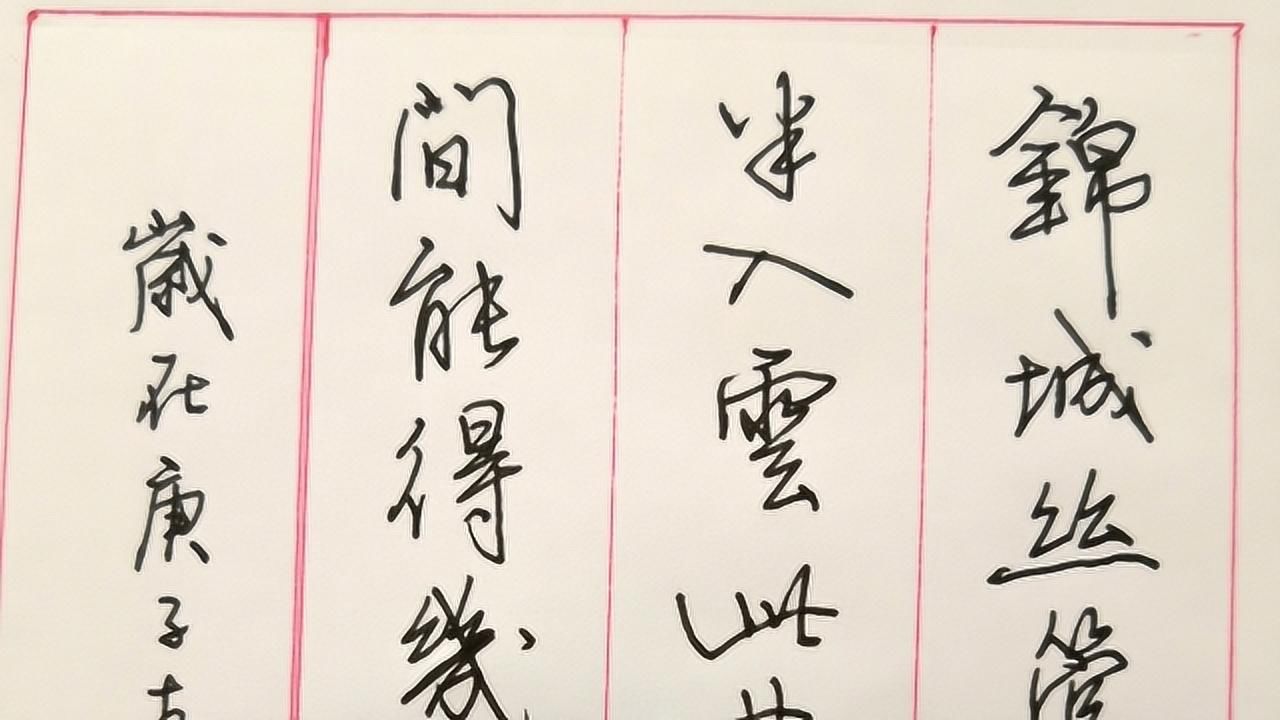 錦城丝管
半入雲此曲
間能得幾
歲在庚子